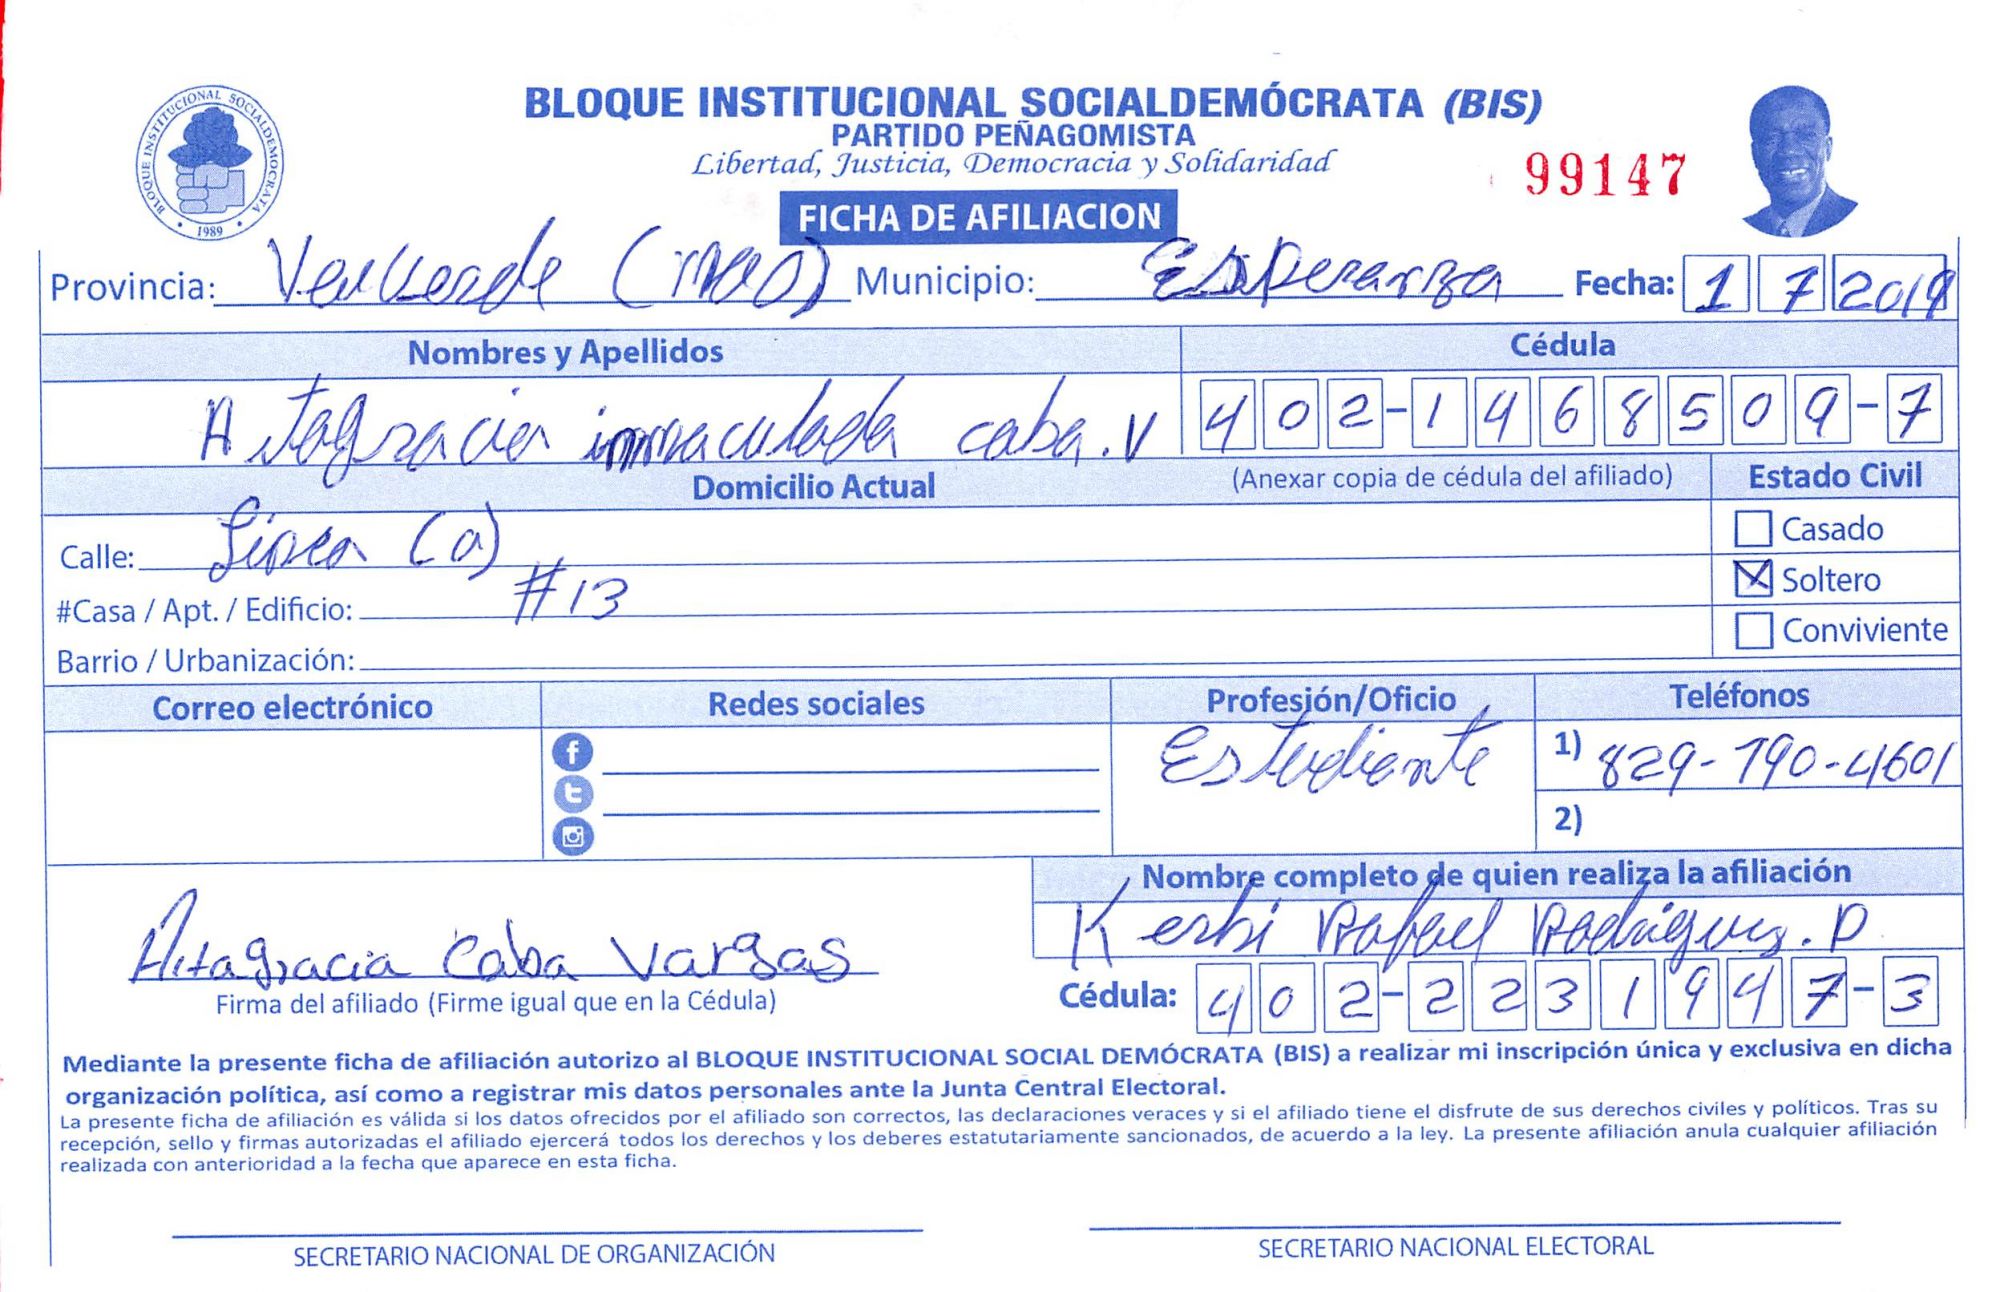 BLOQUE INSTITUCIONAL SOCIALDEMÓCRATA (BIS)
PARTIDO PEÑAGOMISTA
Libertad, Justicia, Democracia y Solidaridad
BLOQUE INSTITUCIONAL SOCIALDEMOCRATA
1989
99147
FICHA DE AFILIACION
Provincia: Valverde (Mao) Municipio: Esperanza Fecha: 1 7 2019
Nombres y Apellidos Cédula
Altagracia inmaculada caba.V 402-1468509-7
Domicilio Actual (Anexar copia de cédula del afiliado) Estado Civil
Calle: Linea (a) Casado
#Casa / Apt. / Edificio: #13 Soltero
Barrio / Urbanización: Conviviente
Correo electrónico Redes sociales Profesión/Oficio Teléfonos
Estudiante 1) 829-790-4601
2)
Nombre completo de quien realiza la afiliación
Kerbi Rafael Rodriguez.P
Altagracia Caba Vargas
Firma del afiliado (Firme igual que en la Cédula) Cédula: 402-2231947-3
Mediante la presente ficha de afiliación autorizo al BLOQUE INSTITUCIONAL SOCIAL DEMÓCRATA (BIS) a realizar mi inscripción única y exclusiva en dicha
organización política, así como a registrar mis datos personales ante la Junta Central Electoral.
La presente ficha de afiliación es válida si los datos ofrecidos por el afiliado son correctos, las declaraciones veraces y si el afiliado tiene el disfrute de sus derechos civiles y políticos. Tras su
recepción, sello y firmas autorizadas el afiliado ejercerá todos los derechos y los deberes estatutariamente sancionados, de acuerdo a la ley. La presente afiliación anula cualquier afiliación
realizada con anterioridad a la fecha que aparece en esta ficha.
SECRETARIO NACIONAL DE ORGANIZACIÓN SECRETARIO NACIONAL ELECTORAL